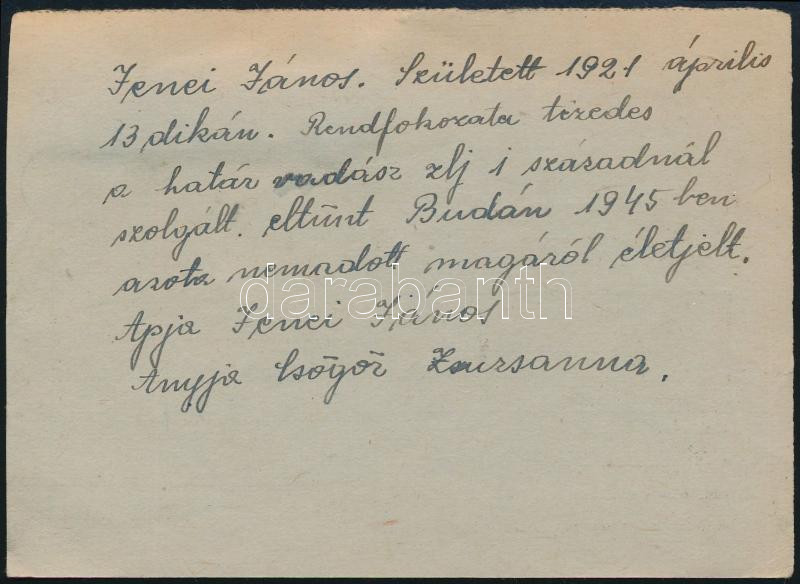 Jenei János. Született 1921 április
13 dikán. Rendfokozata tizedes
a határ vadász zlj i századnál
szolgált. eltünt Budán 1945 ben
azota nemadott magáról életjelt.
darabanth
Apja Jenei János
Anyja Csögör Zsuzsanna.